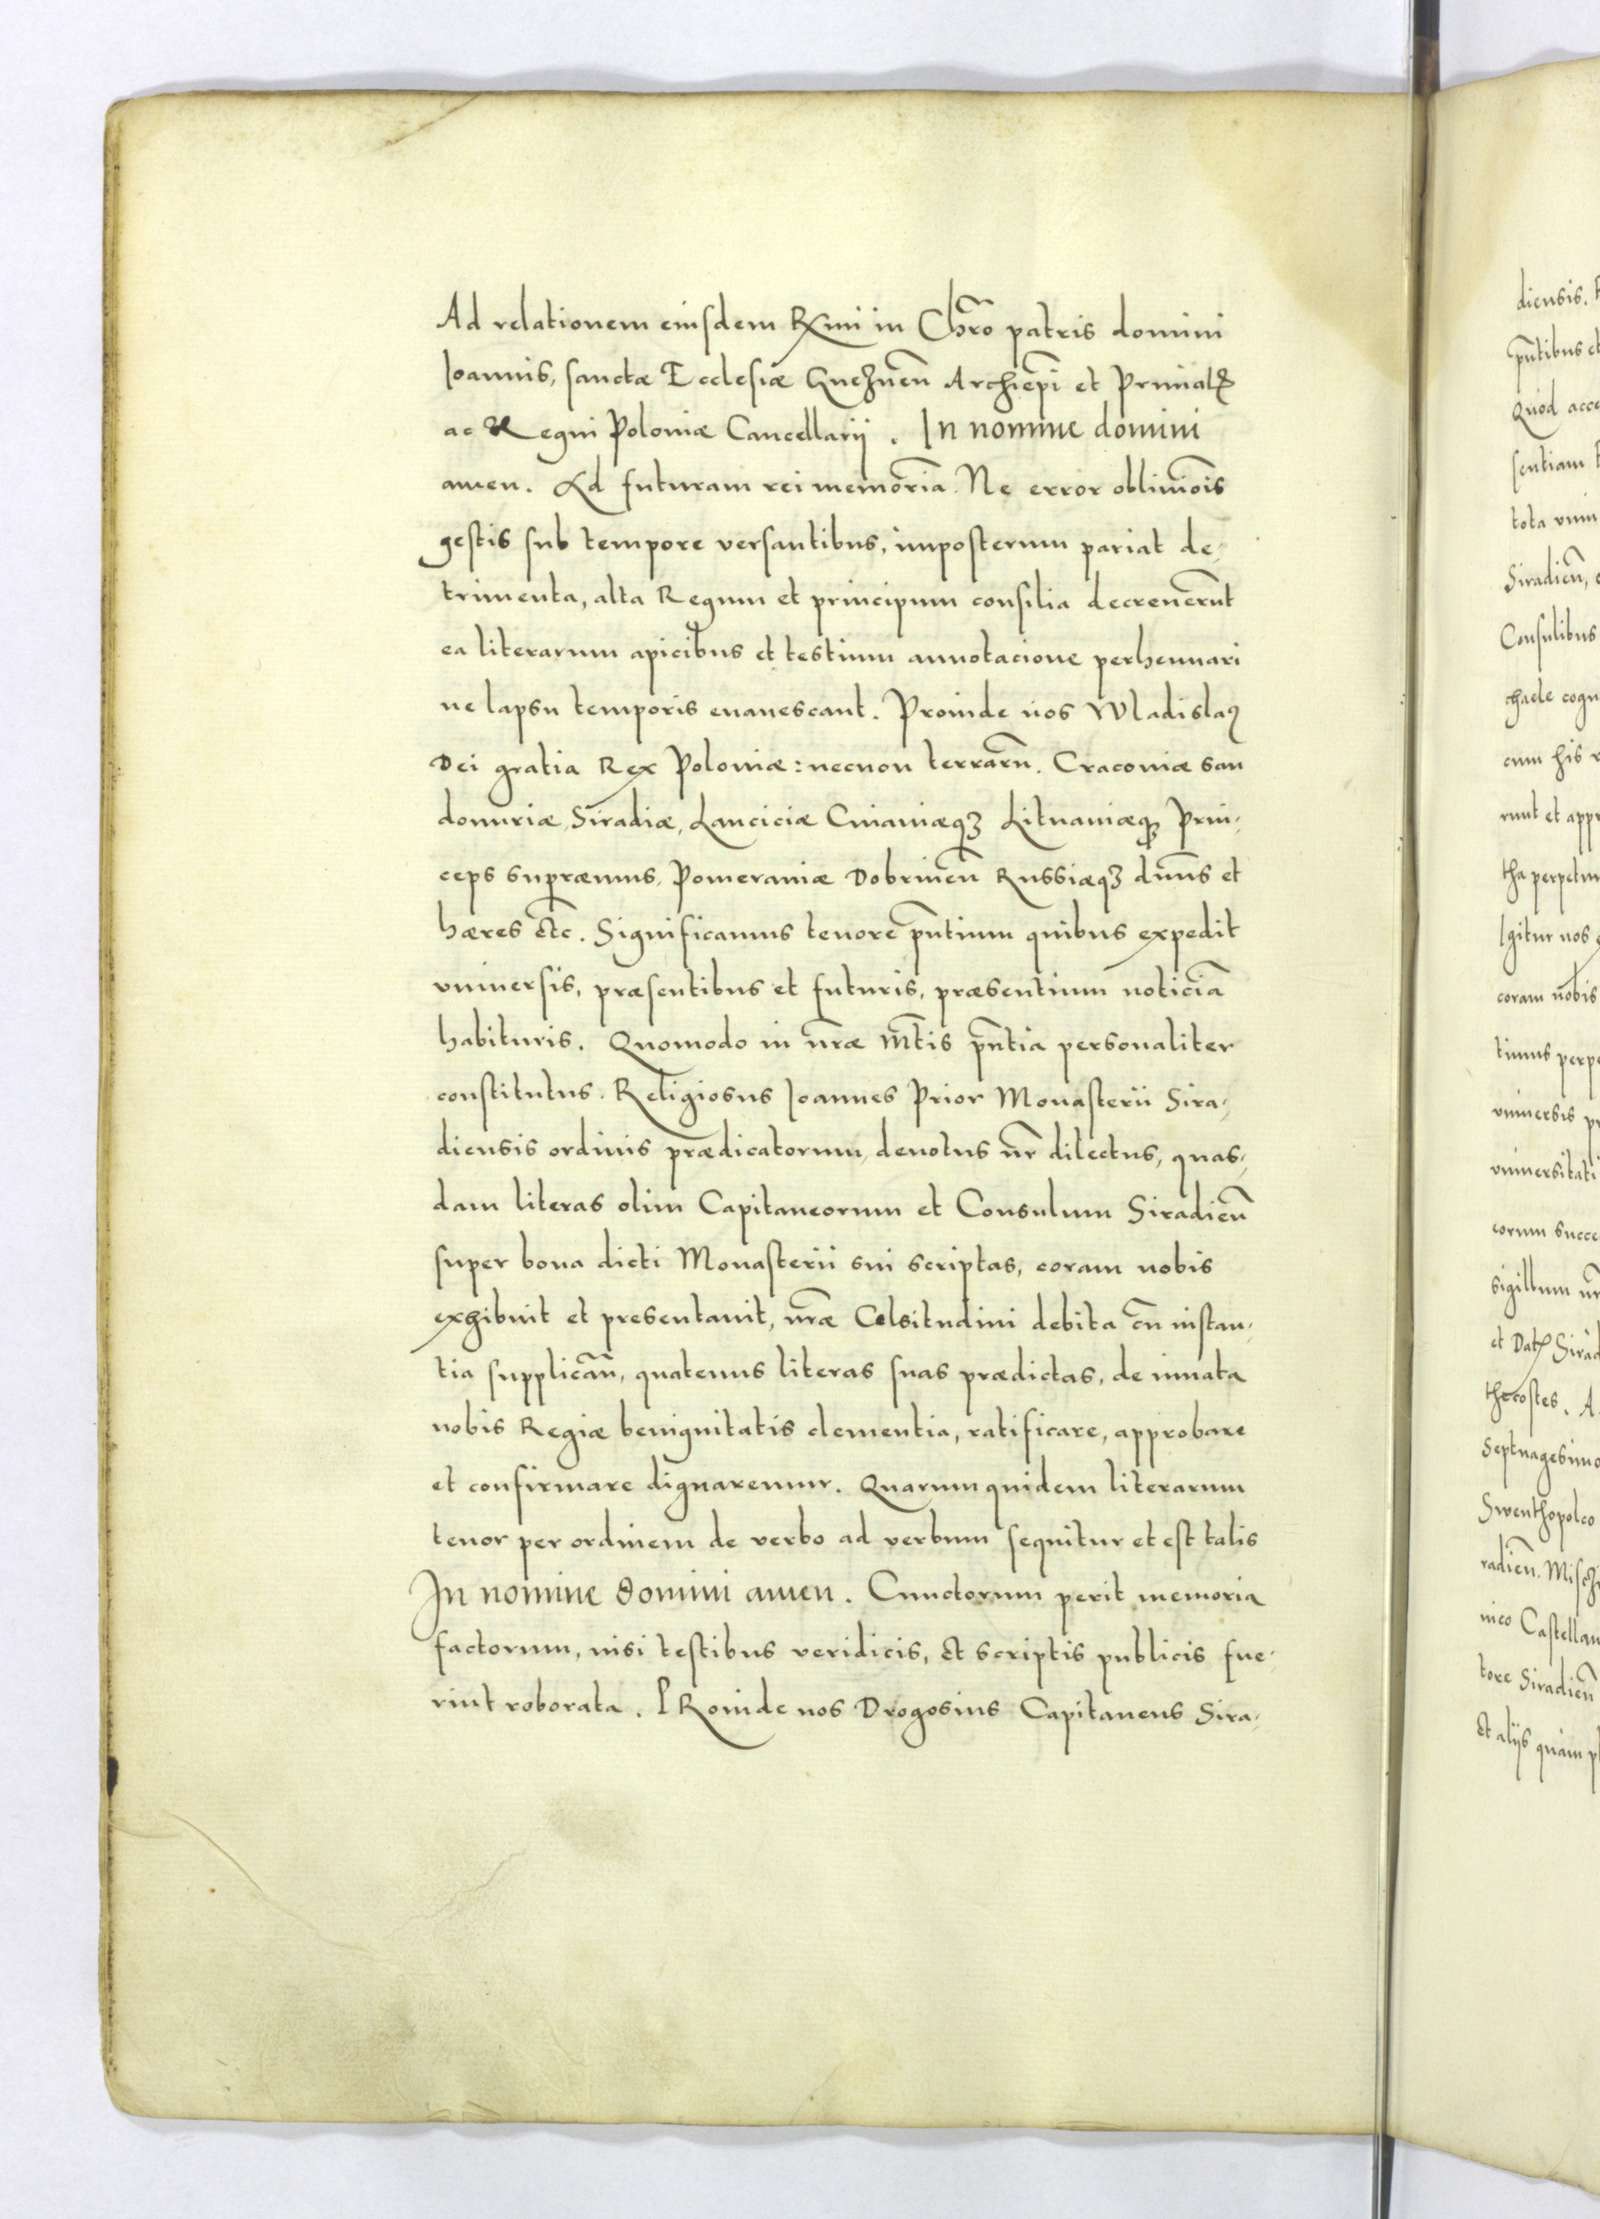 Ad relationem eiusdem Rmi in Chro patris domini
Ioannis, sanctæ Ecclesiæ Gneznen̄ Archiep̄i et Primat̄
ac Regni Poloniæ Cancellarij. In nomine domini
amen. Ad futuram rei memoriā. Ne error obliuiōis
gestis sub tempore versantibus, imposterum pariat de-
trimenta, alta Regum et principum consilia decreuerūt
ea literarum apicibus et testium annotacione perhennari
ne lapsu temporis euanescant. Proinde nos Wladislaꝰ
Dei gratia Rex Poloniæ: necnon terrarū. Cracouiæ san
domiriæ, Siradiæ, Lanciciæ Cuiauiæqꝫ Lituaniæqꝫ Prin-
ceps supræmus, Pomeraniæ Dobrinen̄ Russiæqꝫ dn̄us et
hæres etc̄. Significamus tenore pn̄tium quibus expedit
vniuersis, præsentibus et futuris, præsentium noticiā
habituris. Quomodo in nr̄æ Mt̄is pn̄tia personaliter
constitutus. Religiosus Ioannes Prior Monasterii Sira-
diensis ordinis prædicatorum, deuotus nr̄ dilectus, quas-
dam literas olim Capitaneorum et Consulum Siradien̄
super bona dicti Monasterii sui scriptas, coram nobis
exhibuit et presentauit, nr̄æ Celsitudini debita cū instan-
tia supplicān̄, quatenus literas suas prædictas, de innata
nobis Regiæ benignitatis clementia, ratificare, approbare
et confirmare dignaremur. Quarum quidem literarum
tenor per ordinem de verbo ad verbum sequitur et est talis
In nomine domini amen. Cunctorum perit memoria
factorum, nisi testibus veridicis, et scriptis publicis fue-
rint roborata. PRoinde nos Drogosius Capitaneus Sira-
diensis.
pn̄tibus et
Quod acce
sentiam
tota vniu
Siradien̄,
Consulibus
chaele cogn
cum his
runt et appr
tha perpetuu
Igitur nos
coram nobis
timus perpe
vniuersis pr
vniuersitati
eorum succe
sigillum nr̄
et Datꝫ Sirad
thecostes. A
Septuagesimo
Swenthopolco
radien̄. Misch
nico Castellan
tore Siradien̄
et alijs quam pl